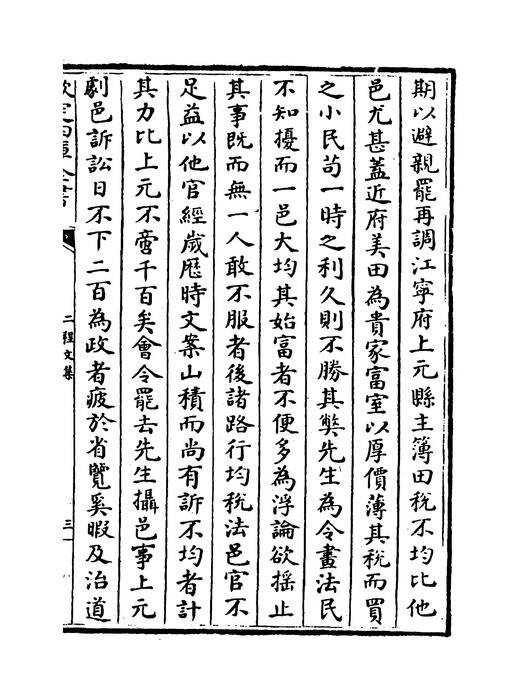 期以避親罷再調江寧府上元縣主簿田税不均比他
邑尤甚蓋近府美田為貴家富室以厚價薄其税而買
之小民苟一時之利久則不勝其弊先生為令畫法民
不知擾而一邑大均其始富者不便多為浮論欲揺止
其事既而無一人敢不服者後諸路行均税法邑官不
足益以他官經歲厯時文案山積而尚有訴不均者計
其力比上元不啻千百矣會令罷去先生攝邑事上元
劇邑訴訟日不下二百為政者疲於省覽奚暇及治道
欽定四庫全書
二程文集
三